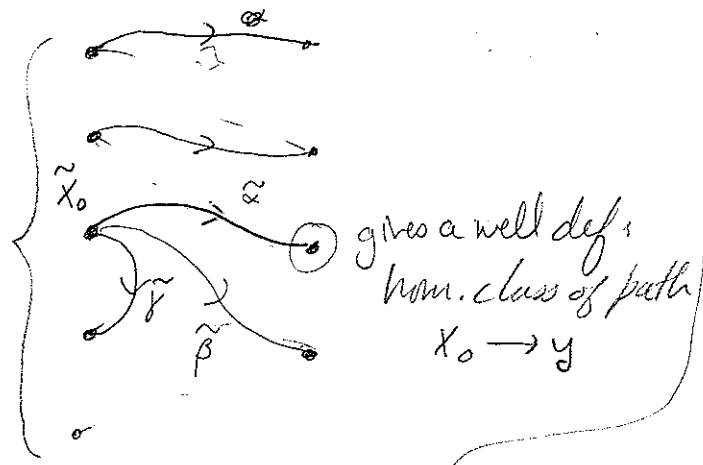 α
x̃₀
α̃
gives a well def.
hom. class of path
x₀ → y
γ̃
β̃